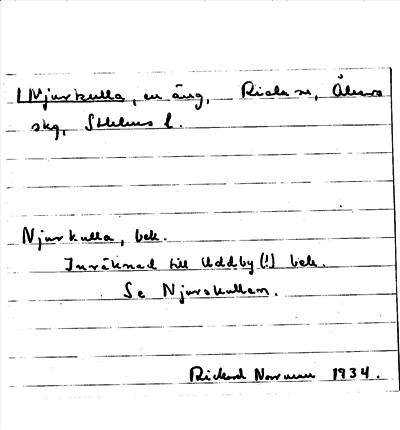 Njurkulla, en äng, Riala sn, Åkers
skg, Sthlms l.
Njurkulla, beb.
Inräknad till Uddby (!) beb.
Se Njurskullen.
Rickard Norman 1934.